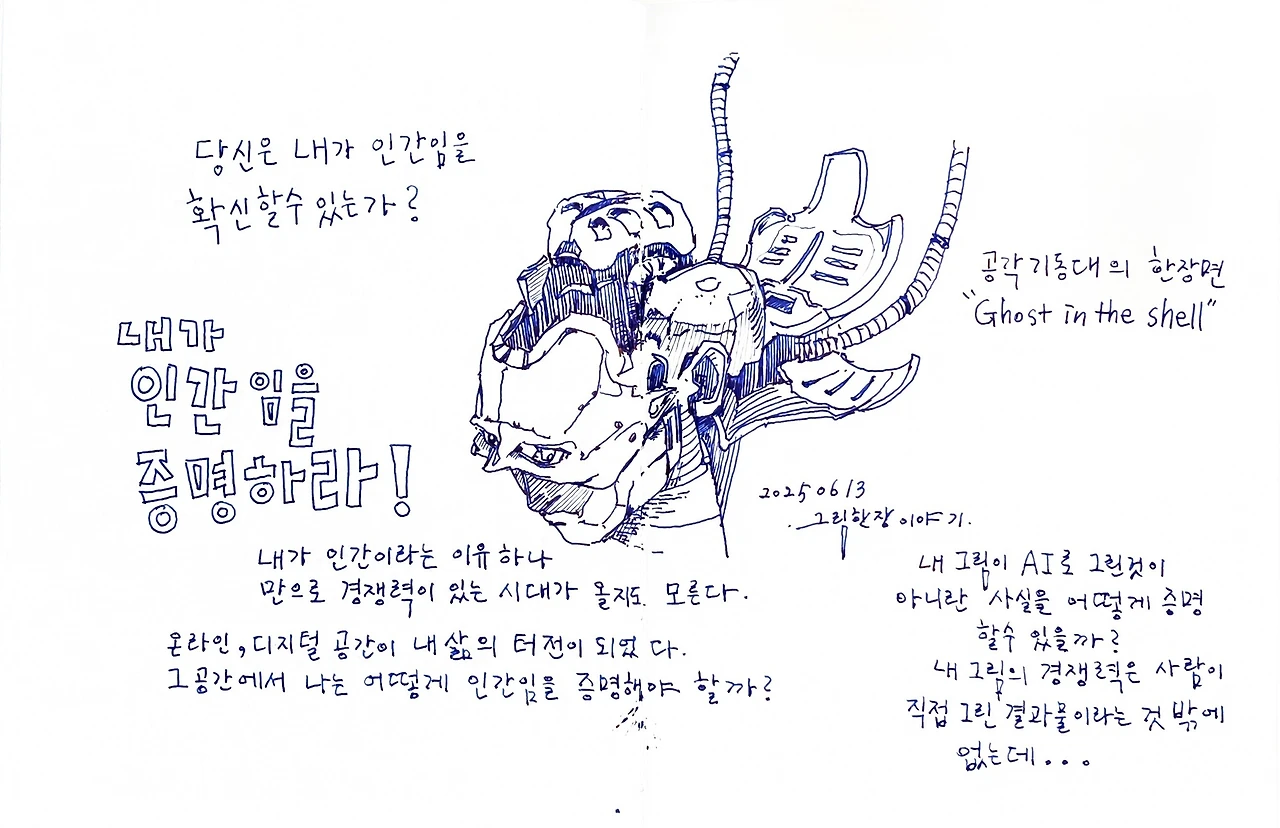 당신은 내가 인간임을
확신할수 있는가?
내가
인간임을
증명하라!
내가 인간이라는 이유하나
만으로 경쟁력이 있는 시대가 올지도 모른다.
온라인, 디지털 공간이 내 삶의 터전이 되었다.
그공간에서 나는 어떻게 인간임을 증명해야 할까?
공각기동대의 한장면
"Ghost in the shell"
20250613
그림한장이야기.
내 그림이 AI로 그린것이
아니란 사실을 어떻게 증명
할수 있을까?
내 그림의 경쟁력은 사람이
직접 그린 결과물이라는 것 밖에
없는데...